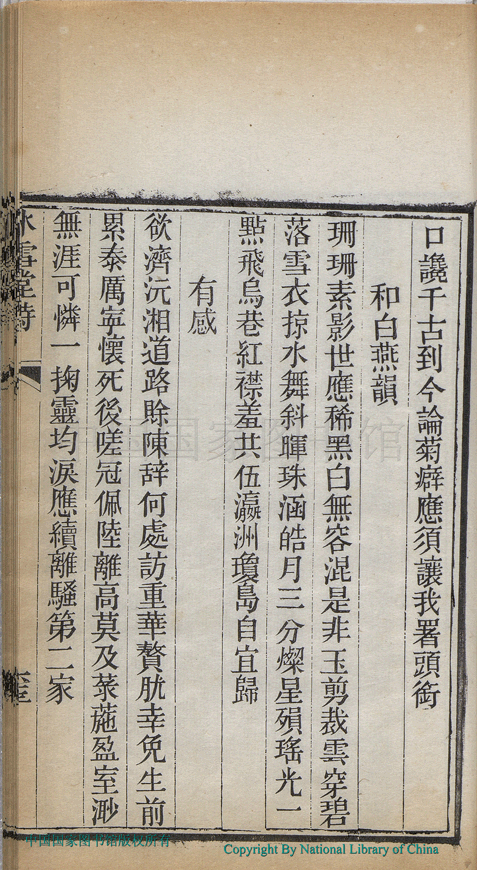 口讒千古到今論菊癖應須讓我署頭銜
和白燕韻
珊珊素影世應稀黑白無容混是非玉剪裁雲穿碧
落雪衣掠水舞斜暉珠涵皓月三分燦星殞瑤光一
點飛烏巷紅襟羞共伍瀛洲瓊島自宜歸
有感
欲濟沅湘道路賒陳辭何處訪重華贅肬幸免生前
累泰厲寧懷死後嗟冠佩陸離高莫及菉葹盈室渺
無涯可憐一掬靈均淚應續離騷第二家
冰雪堂詩
中国国家图书馆
中国国家图书馆版权所有
Copyright By National Library of China